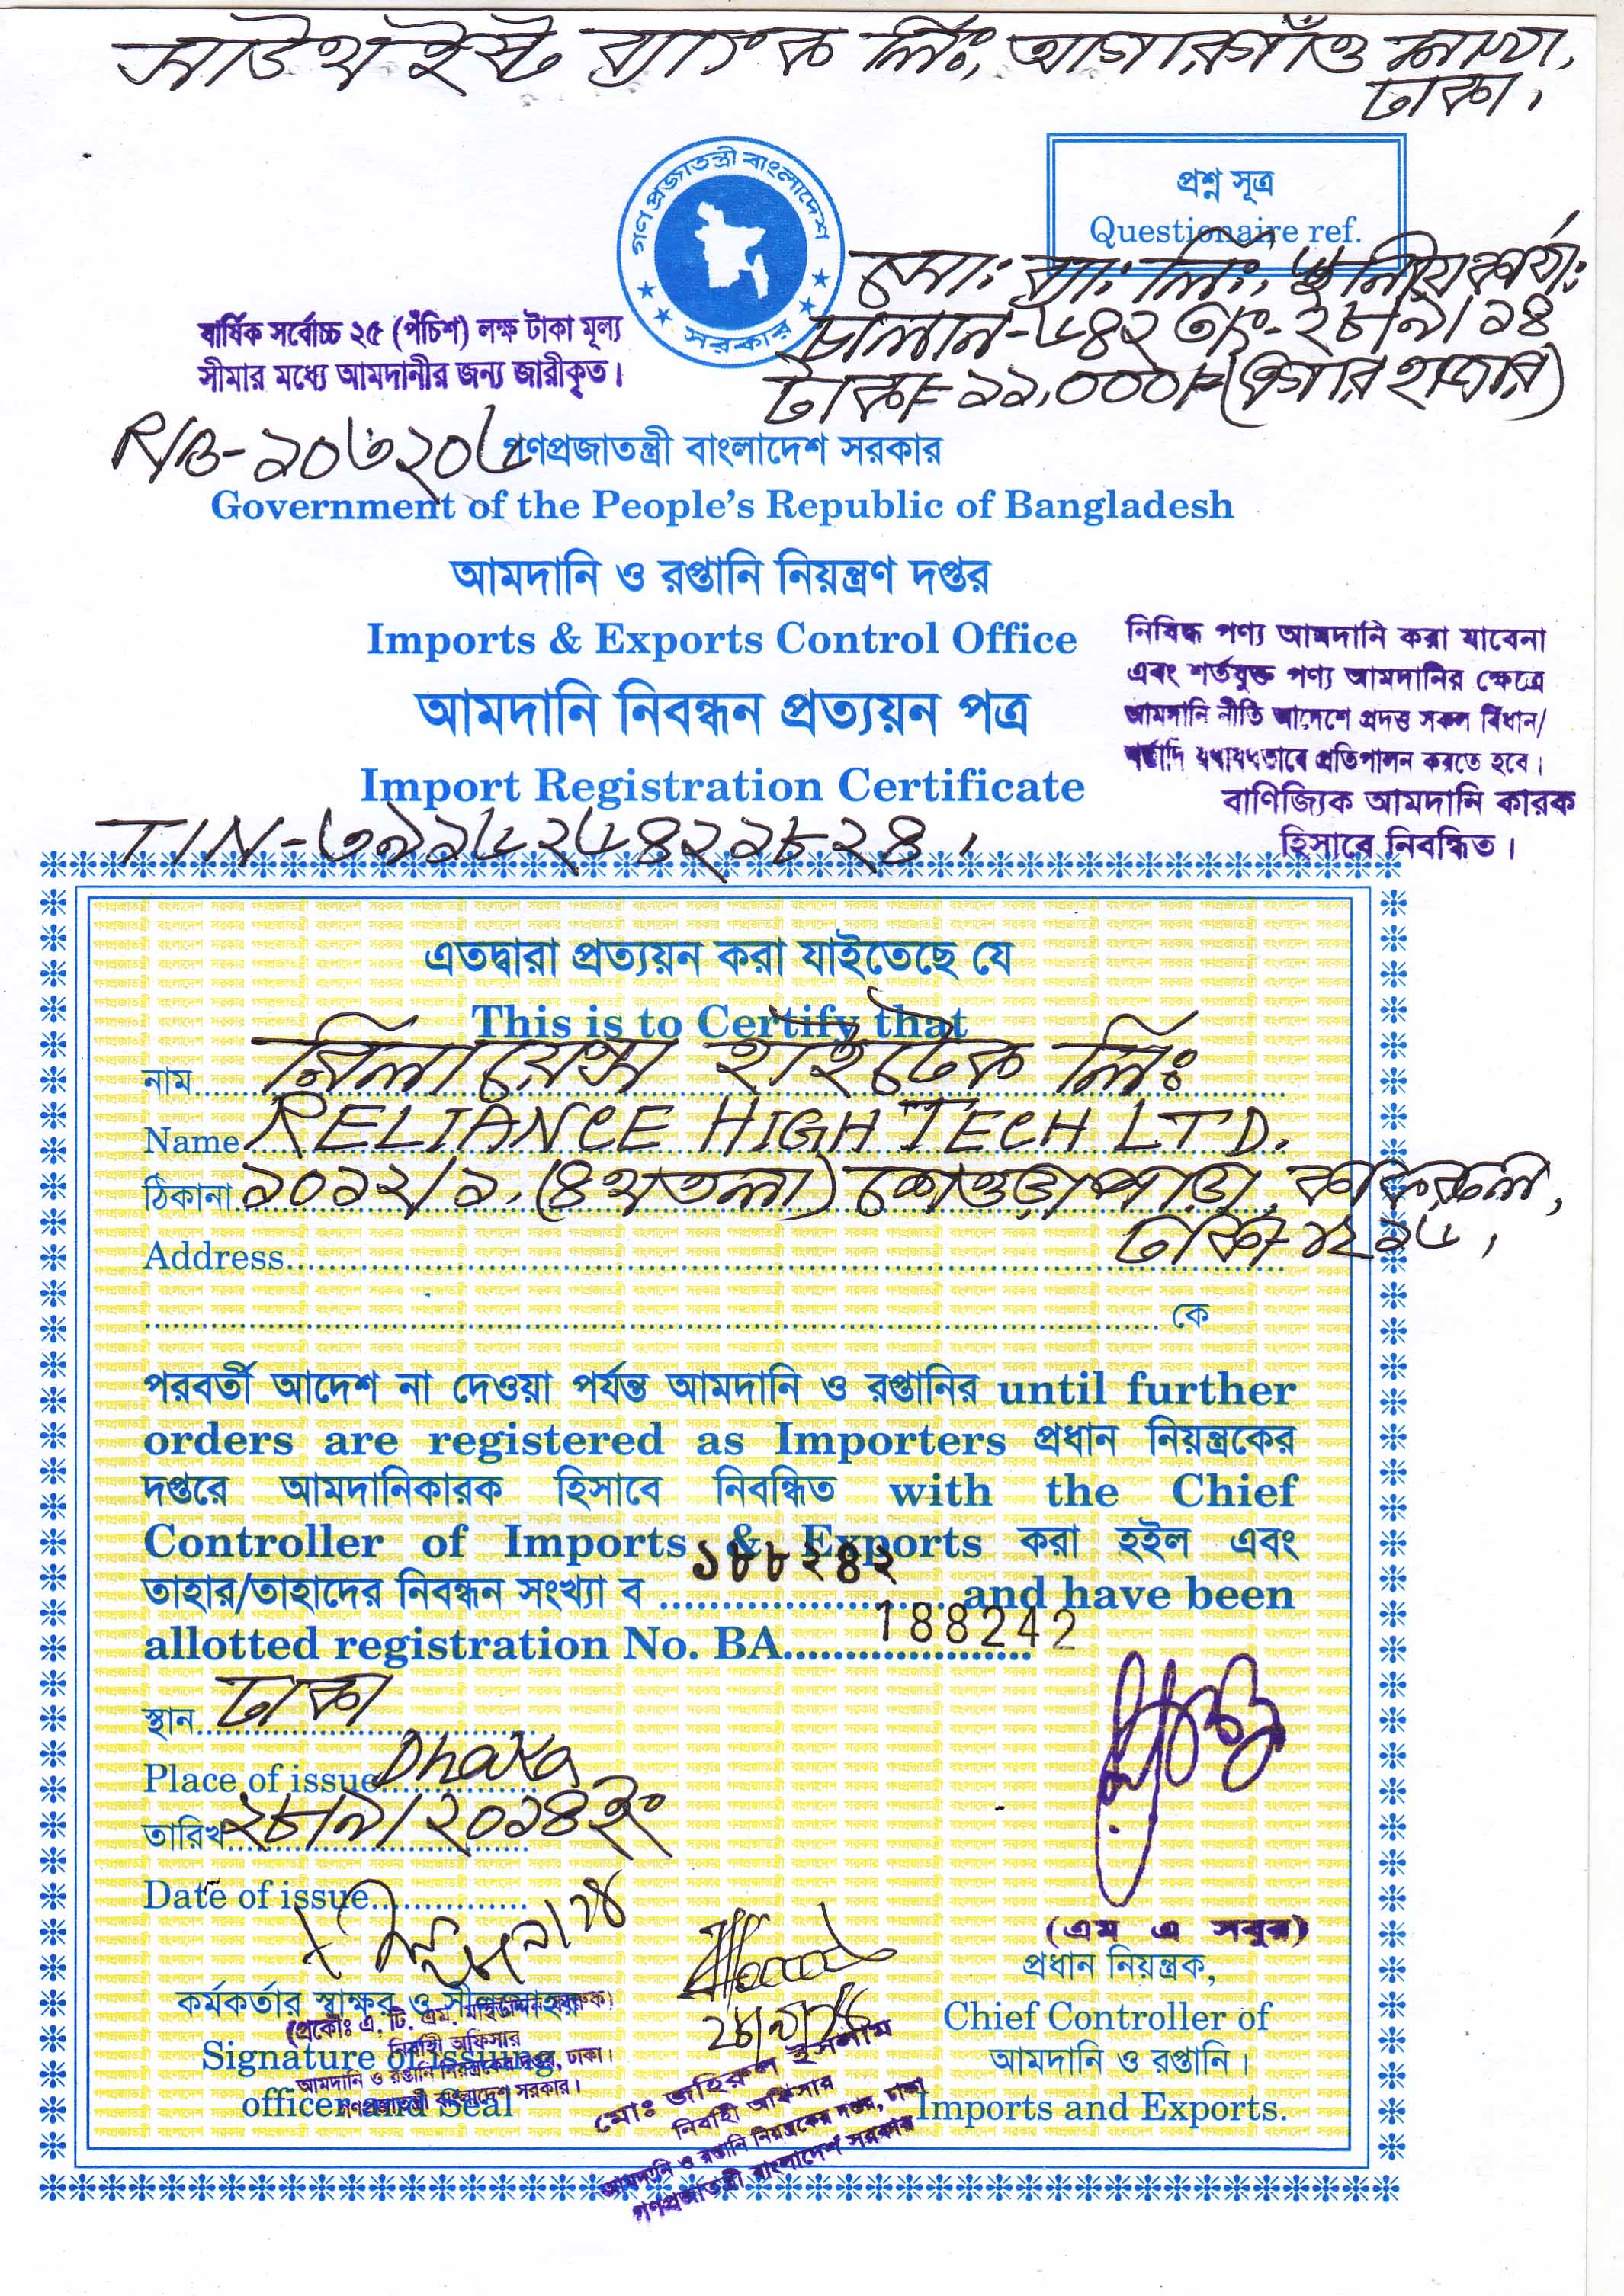 সাউথইস্ট ব্যাংক লিঃ, আগারগাঁও শাখা,
ঢাকা।
গণপ্রজাতন্ত্রী বাংলাদেশ
সরকার
প্রশ্ন সূত্র
Questionaire ref.
সোঃ ব্যাঃ লিঃ,
চালান-৬৪২ তাং-২৮/৯/১৪
টাকা=১১,০০০/=(এগার হাজার)
বার্ষিক সর্বোচ্চ ২৫ (পঁচিশ) লক্ষ টাকা মূল্য
সীমার মধ্যে আমদানীর জন্য জারীকৃত।
R/B-১০৩২০৬
গণপ্রজাতন্ত্রী বাংলাদেশ সরকার
Government of the People's Republic of Bangladesh
আমদানি ও রপ্তানি নিয়ন্ত্রণ দপ্তর
Imports & Exports Control Office
আমদানি নিবন্ধন প্রত্যয়ন পত্র
Import Registration Certificate
নিষিদ্ধ পণ্য আমদানি করা যাবেনা
এবং শর্তযুক্ত পণ্য আমদানির ক্ষেত্রে
আমদানি নীতি আদেশে প্রদত্ত সকল বিধান/
শর্তাদি যথাযথভাবে প্রতিপালন করতে হবে।
বাণিজ্যিক আমদানি কারক
হিসাবে নিবন্ধিত।
TIN-৩৯১৬২৬৪২১৮২৪।
এতদ্বারা প্রত্যয়ন করা যাইতেছে যে
This is to Certify that
নাম রিলায়েন্স হাইটেক লিঃ
Name RELIANCE HIGH TECH LTD.
ঠিকানা ১০১২/১, (৪থতলা) শেওড়াপাড়া, কাফরুল,
ঢাকা-১২১৬।
Address
কে
পরবর্তী আদেশ না দেওয়া পর্যন্ত আমদানি ও রপ্তানির until further
orders are registered as Importers প্রধান নিয়ন্ত্রকের
দপ্তরে আমদানিকারক হিসাবে নিবন্ধিত with the Chief
Controller of Imports & Exports করা হইল এবং
তাহার/তাহাদের নিবন্ধন সংখ্যা ব ১৮৮২৪২ and have been
allotted registration No. BA 188242
স্থান ঢাকা
Place of issue Dhaka
তারিখ ২৮/৯/২০১৪ইং
Date of issue
(এম এ সবুর)
প্রধান নিয়ন্ত্রক,
Chief Controller of
আমদানি ও রপ্তানি।
Imports and Exports.
কর্মকর্তার স্বাক্ষর ও সীলমোহর
Signature of issuing
officer and Seal
(প্রকৌঃ এ. টি. এম.
নির্বাহী অফিসার
আমদানি ও রপ্তানি নিয়ন্ত্রকের দপ্তর, ঢাকা।
গণপ্রজাতন্ত্রী বাংলাদেশ সরকার।
মোঃ জহিরুল ইসলাম
নির্বাহী অফিসার
আমদানি ও রপ্তানি নিয়ন্ত্রকের দপ্তর, ঢাকা
গণপ্রজাতন্ত্রী বাংলাদেশ সরকার